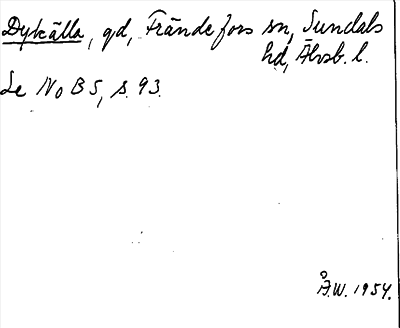 Dykälla, gd, Frändefors sn, Sundals
hd, Älvsb. l.
Se NoB 5, s. 93.
Å.W. 1954.